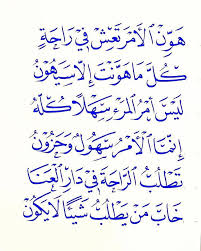 هَوِّنِ الْأَمْرَ تَعِشْ فِي رَاحَةٍ
كُلُّ مَا هَوَّنْتَ إِلَّا سَيَهُونُ
لَيْسَ أَمْرُ الْمَرْءِ سَهْلًا كُلُّهُ
إِنَّمَا الْأَمْرُ سُهُولٌ وَحُزُونُ
تَطْلُبُ الرَّاحَةَ فِي دَارِ الْعَنَا
خَابَ مَنْ يَطْلُبُ شَيْئًا لَا يَكُونُ